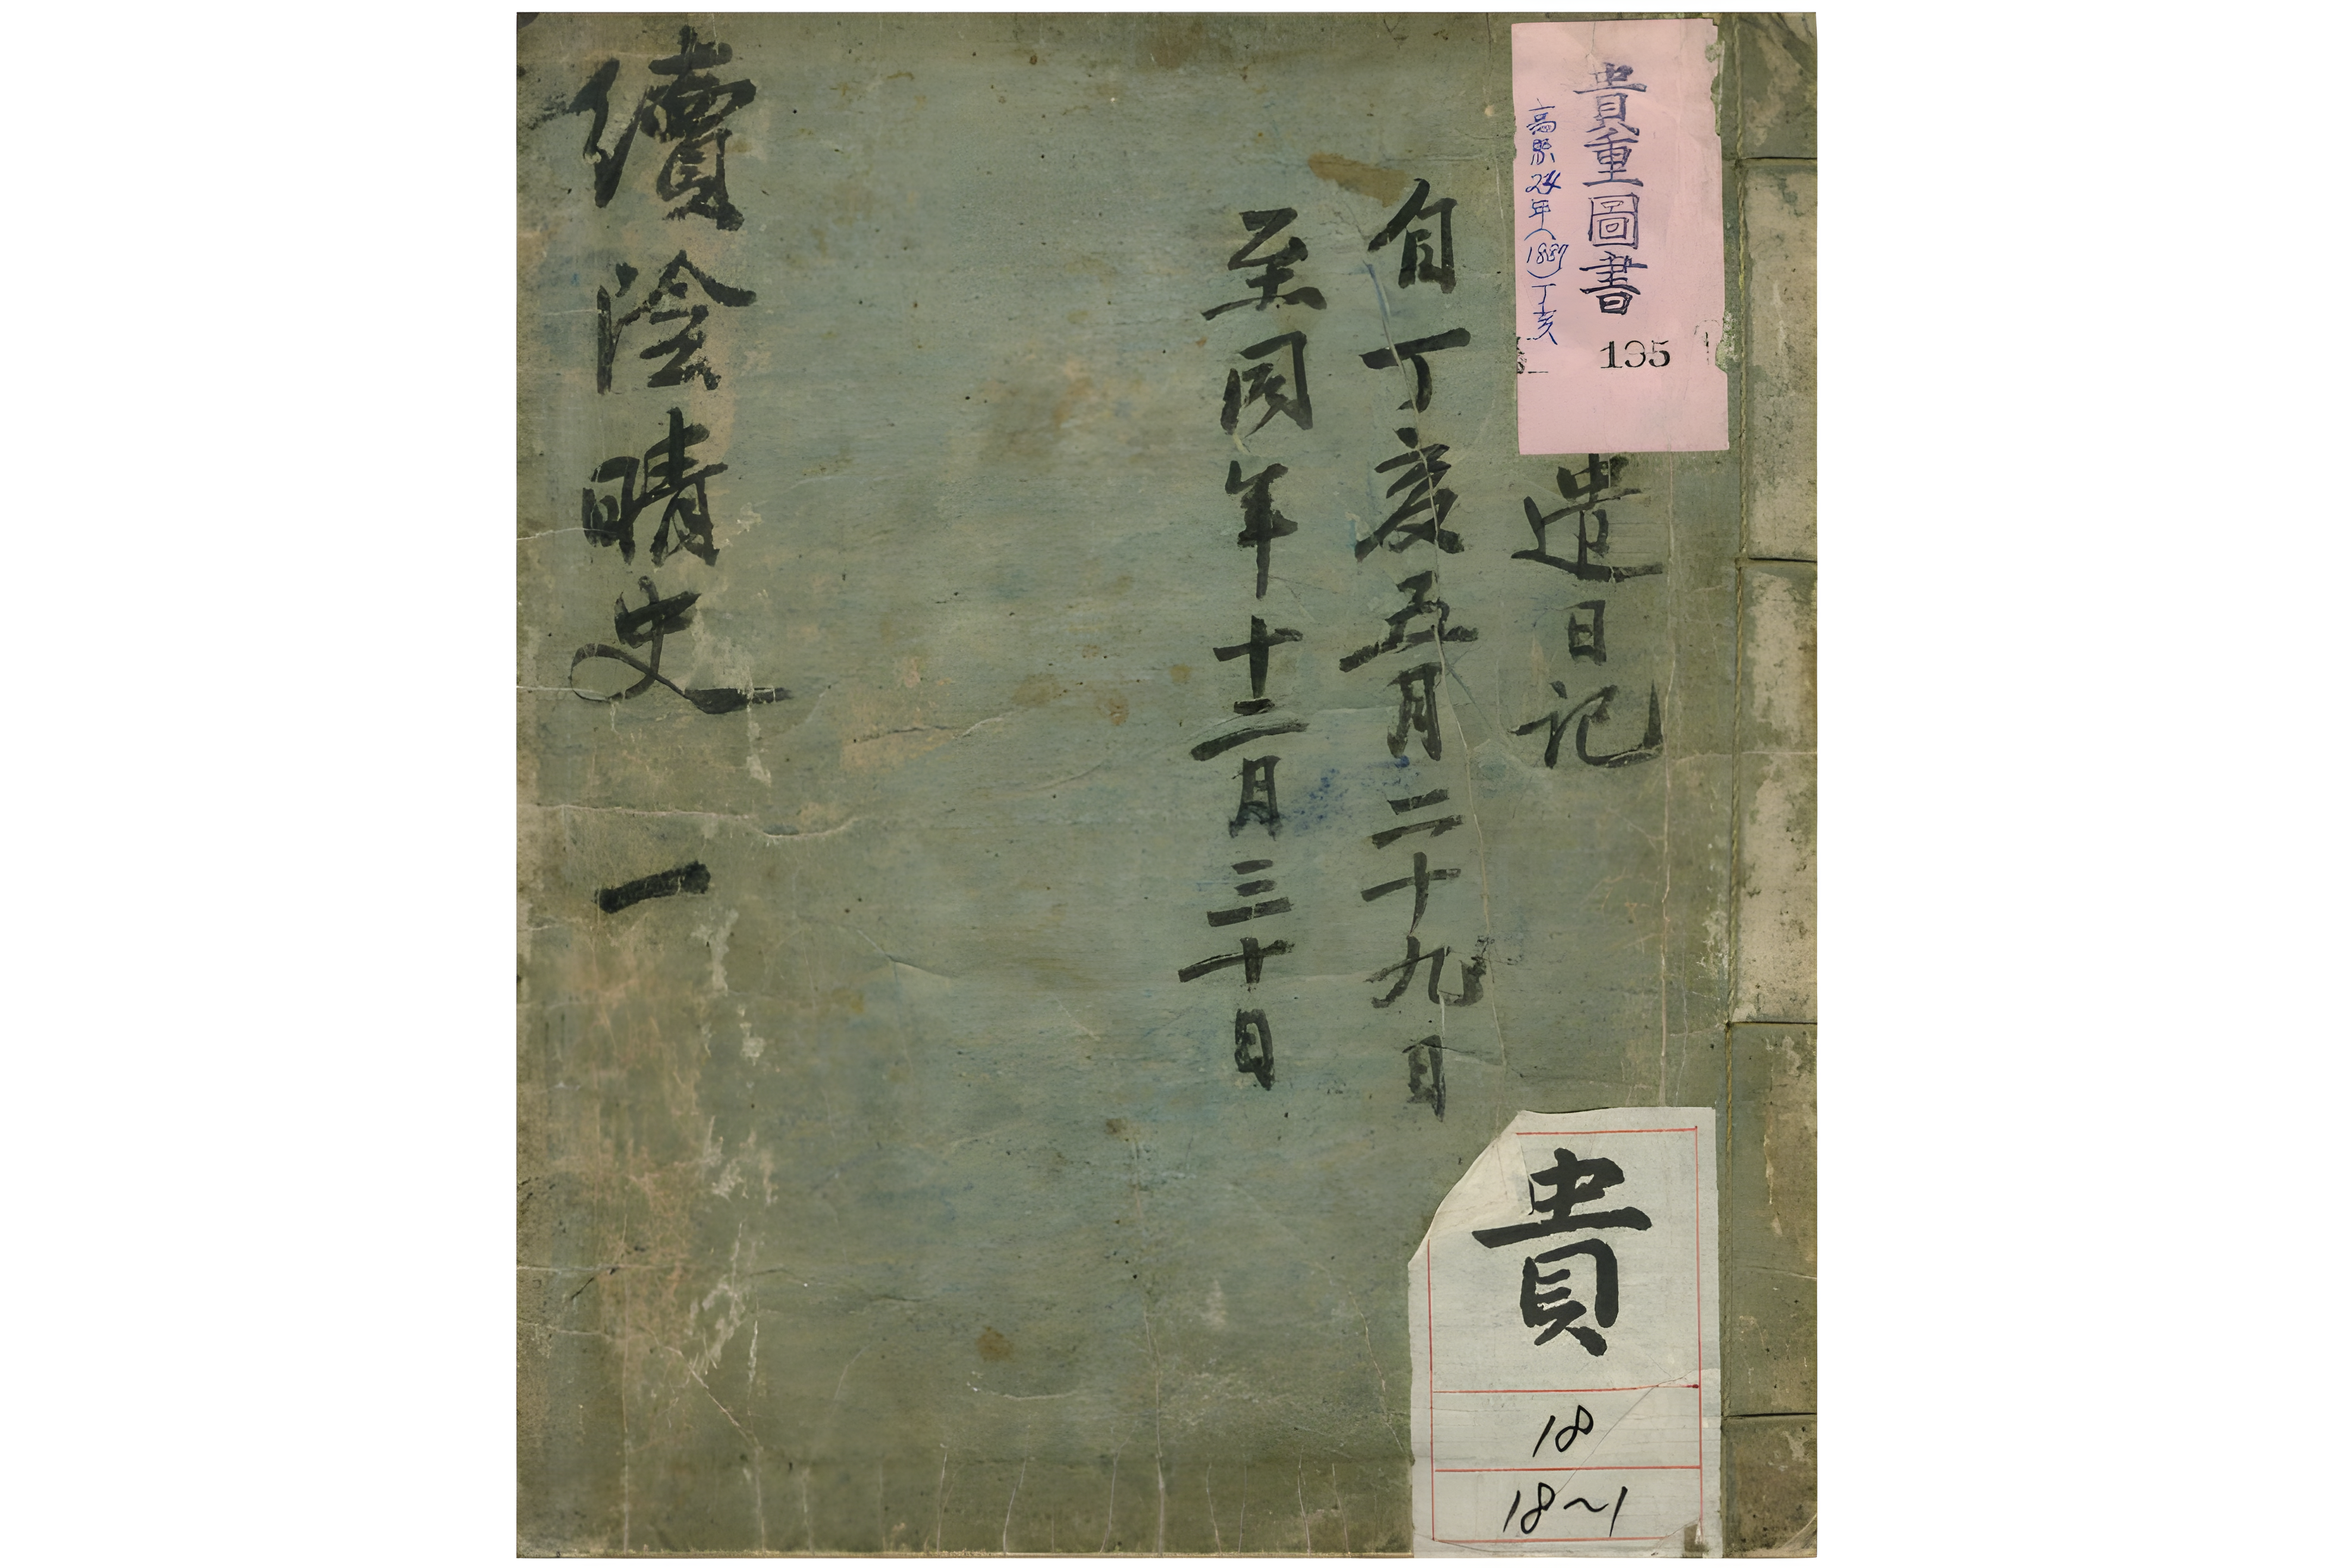 貴重圖書
高熙24年(1887)丁亥
135
遣日记
自丁亥五月二十九日
至同年十二月三十日
續陰晴史 一
貴
18
18~1